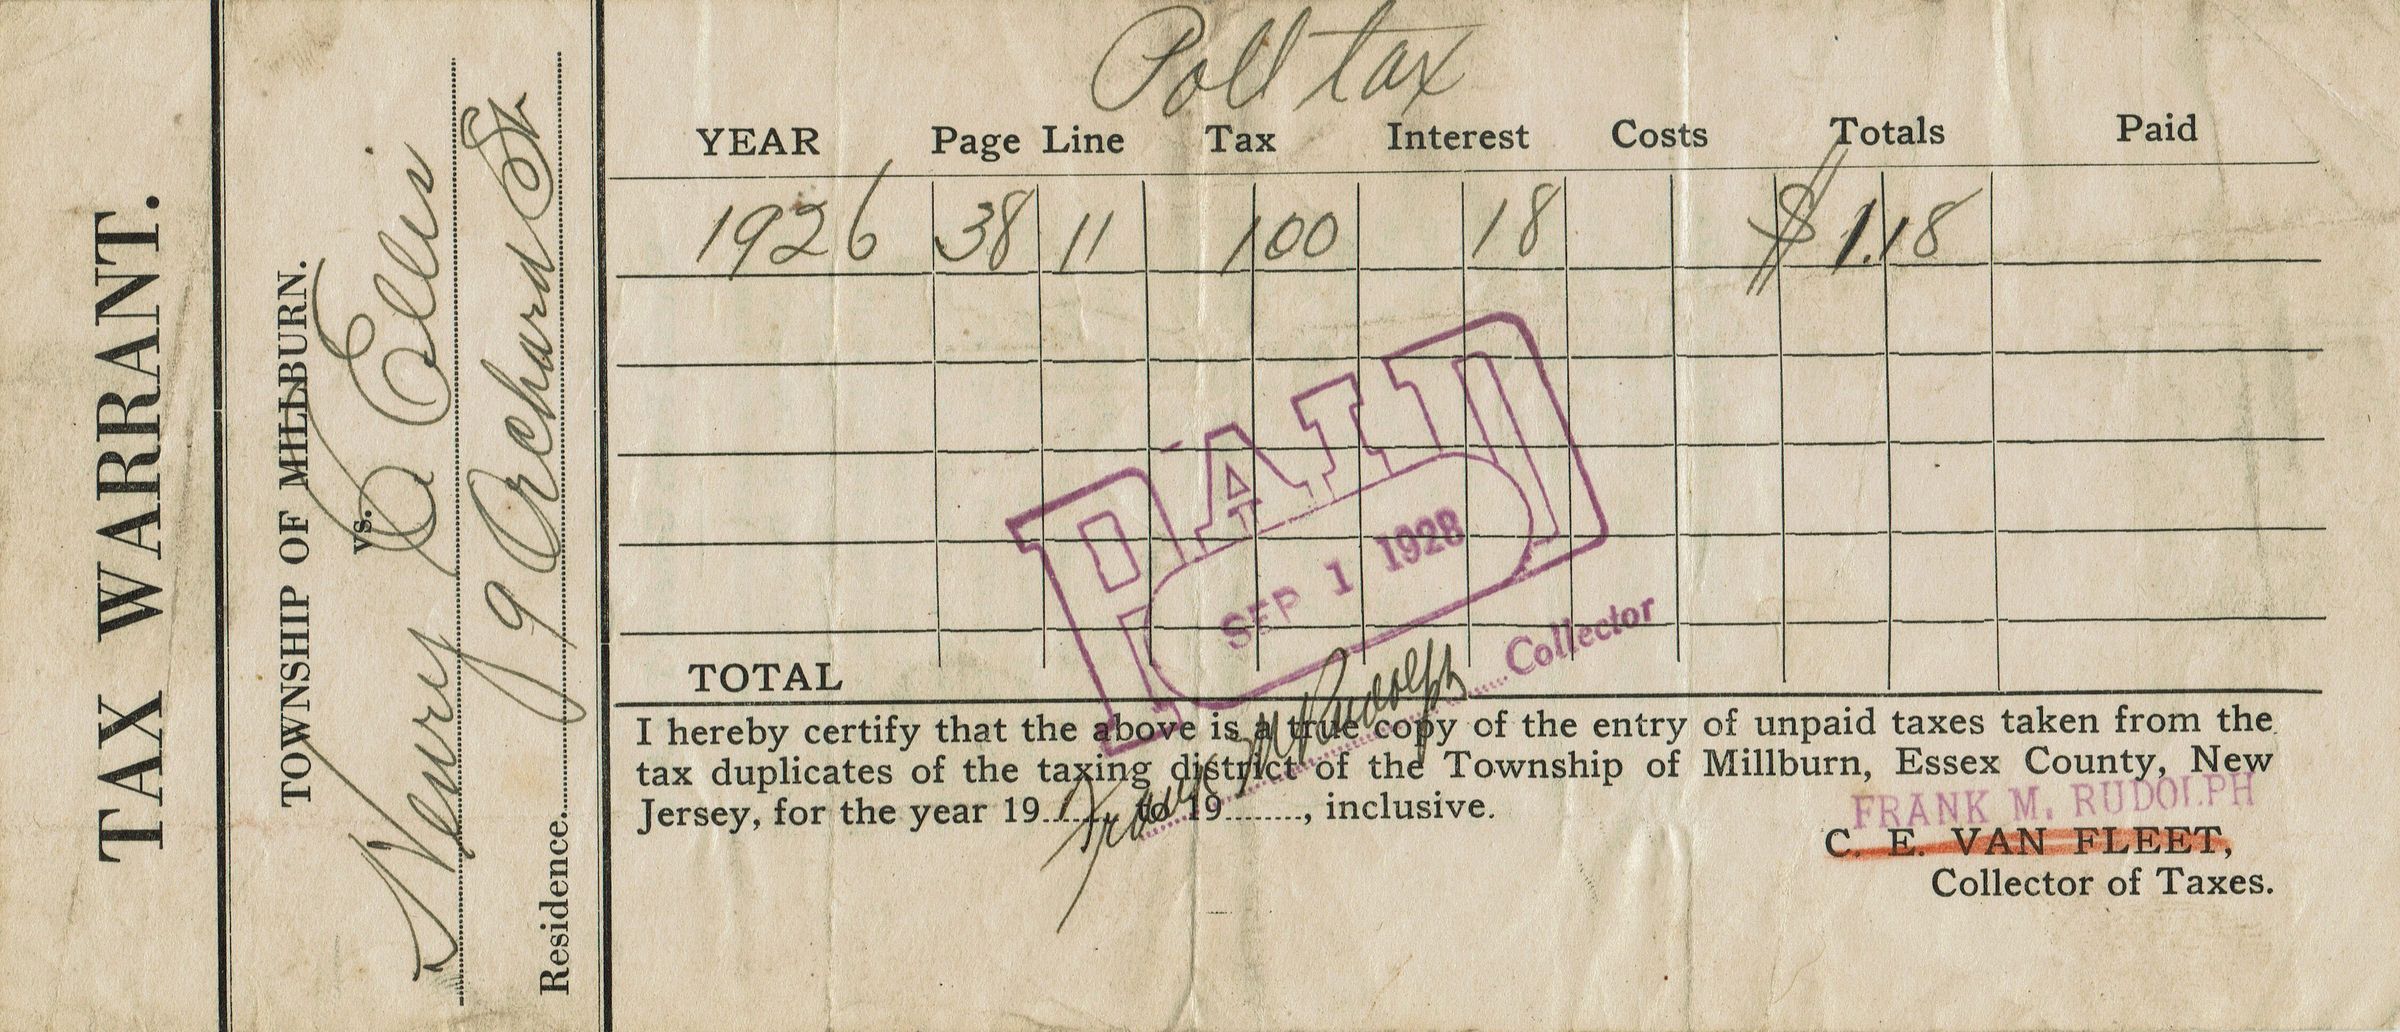 TAX WARRANT.
TOWNSHIP OF MILLBURN.
vs.
Henry C Ellis
9 Orchard St
Residence
Poll tax
YEAR Page Line Tax Interest Costs Totals Paid
1926 38 11 1 00 18 $1.18
PAID
SEP 1 1928
Frank M Rudolph Collector
TOTAL
I hereby certify that the above is a true copy of the entry of unpaid taxes taken from the
tax duplicates of the taxing district of the Township of Millburn, Essex County, New
Jersey, for the year 19......, to 19........, inclusive.
FRANK M. RUDOLPH
C. E. VAN FLEET,
Collector of Taxes.